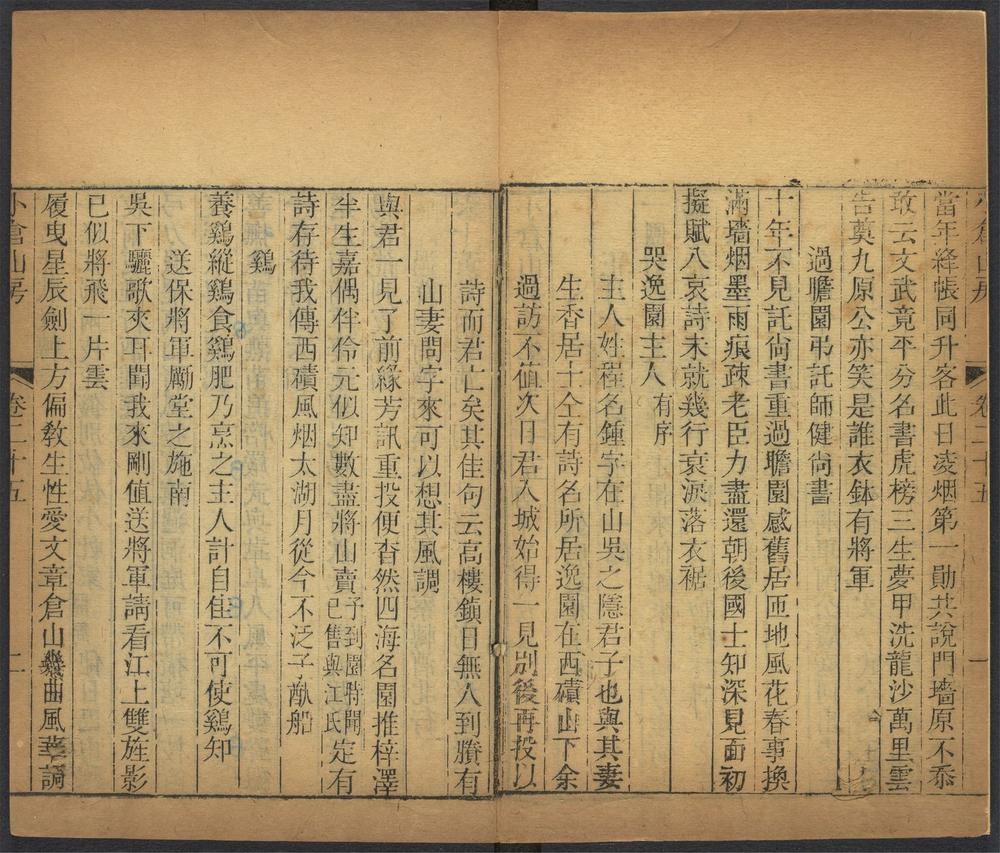 卷二十五
一
當年絳帳同升客此日凌烟第一勛共說門墻原不忝
敢云文武竟平分名書虎榜三生夢甲洗龍沙萬里雲
告奠九原公亦笑是誰衣鉢有將軍
過瞻園弔託師健尙書
十年不見託尙書重過瞻園感舊居匝地風花春事換
滿墻烟墨雨痕疎老臣力盡還朝後國士知深見面初
擬賦八哀詩未就幾行衰淚落衣裾
哭逸園主人有序
主人姓程名鍾字在山吳之隱君子也與其妻
生香居士仝有詩名所居逸園在西磧山下余
過訪不値次日君入城始得一見別後再投以
詩而君亡矣其佳句云高樓鎖日無人到賸有
山妻問字來可以想其風調
與君一見了前緣芳訊重投便杳然四海名園推梓澤
半生嘉偶伴伶元似知數盡將山賣予到園時聞已售與江氏定有
詩存待我傳西磧風烟太湖月從今不泛子猷船
雞
養雞縱雞食雞肥乃烹之主人計自佳不可使雞知
送保將軍勵堂之施南
吳下驪歌夾耳聞我來剛値送將軍請看江上雙旌影
已似將飛一片雲
履曳星辰劍上方偏敎生性愛文章倉山幾曲風華調
小倉山房
卷二十五
二